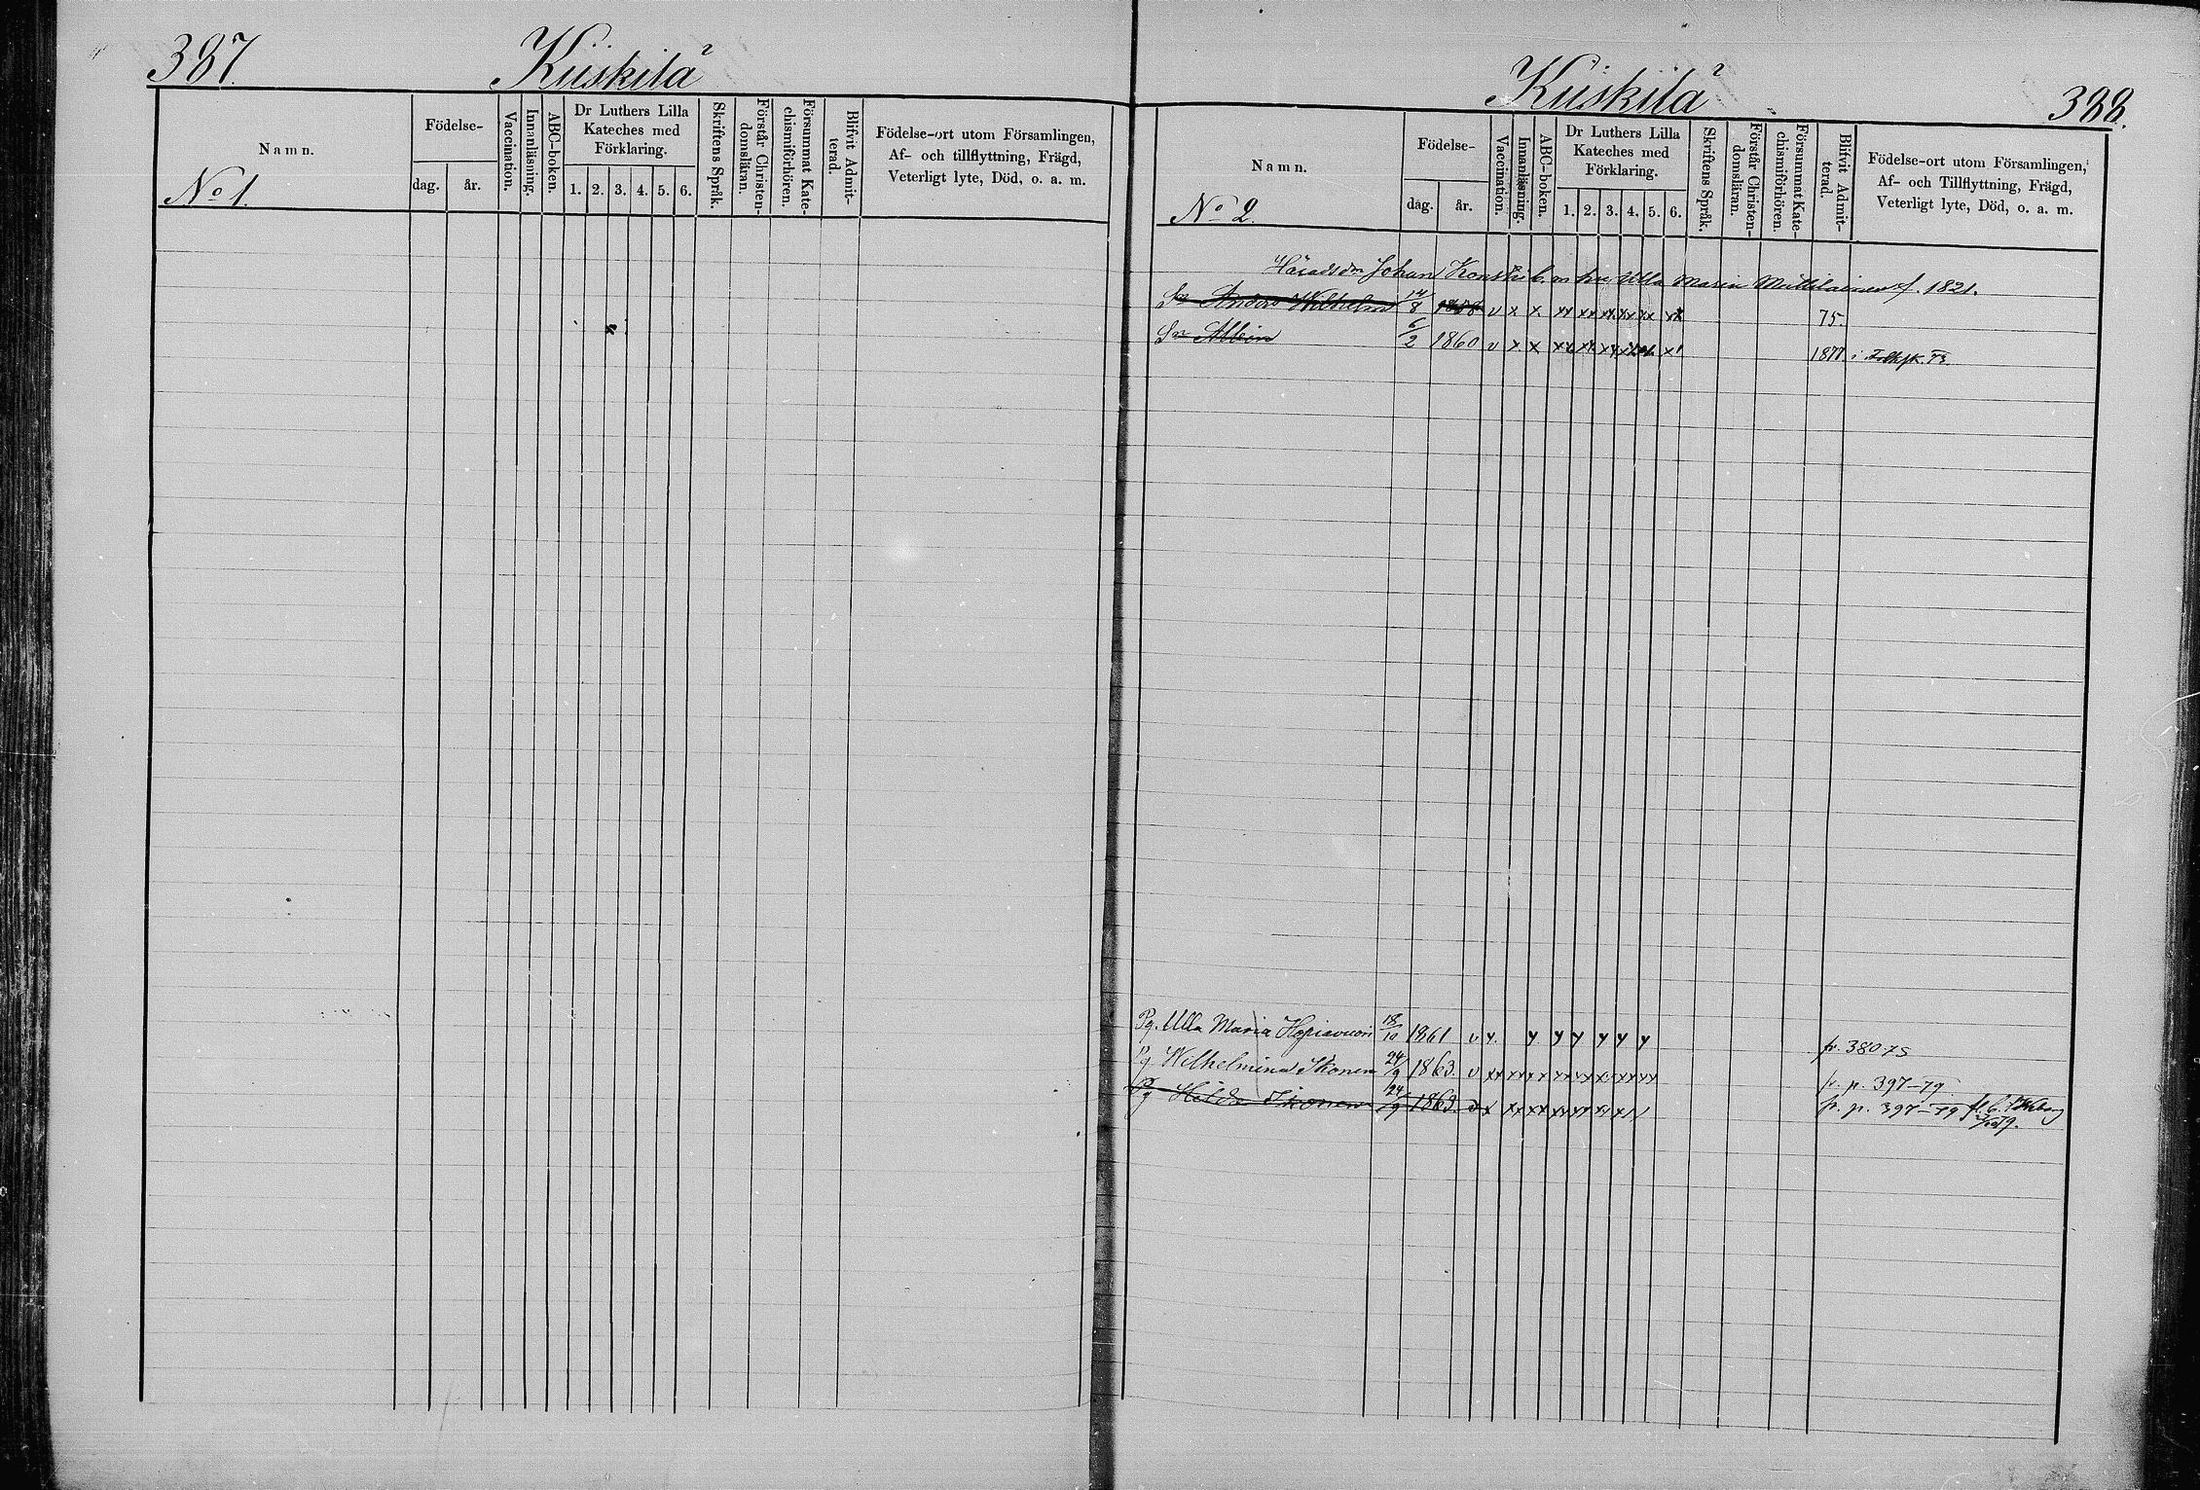 387.
Kiiskilä
Namn.
Födelse-
dag. år.
Vaccination.
Innanläsning.
ABC-boken.
Dr Luthers Lilla
Kateches med
Förklaring.
1. 2. 3. 4. 5. 6.
Skriftens Språk.
Förstår Christen-
domsläran.
Försummat Kate-
chismiförhören.
Blifvit Admit-
terad.
Födelse-ort utom Församlingen,
Af- och tillflyttning, Frägd,
Veterligt lyte, Död, o. a. m.
No 1.
Kiiskilä
388.
Namn.
Födelse-
dag. år.
Vaccination.
Innanläsning.
ABC-boken.
Dr Luthers Lilla
Kateches med
Förklaring.
1. 2. 3. 4. 5. 6.
Skriftens Språk.
Förstår Christen-
domsläran.
Försummat Kate-
chismiförhören.
Blifvit Admit-
terad.
Födelse-ort utom Församlingen,
Af- och Tillflyttning, Frägd,
Veterligt lyte, Död, o. a. m.
No 2.
Johan hu Ulla Maria f. 1821.
Sn Anders Wilhelm 14/8 v x x xx xx xx xx xx 75.
Sn Albin 6/2 1860 v x x 1877
Pg. Ulla Maria 18/10 1861 v y. y y y y y y fr. 380 75
Pg Wilhelmina Ikonen 24/9 1863. v fr. p. 397-79
Pg Hilda Ikonen 24/9 1863. fr. p. 397-79